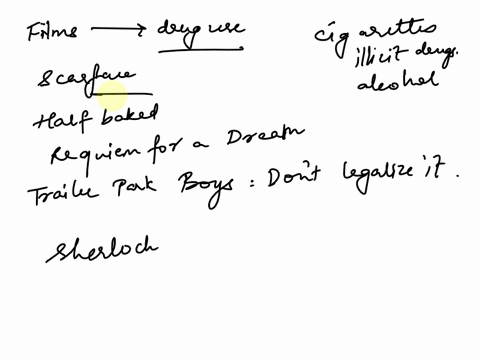 Films → drug use
cigarettes
illicit drugs.
alcohol
Scarface
Half baked
Requiem for a Dream
Trailer Park Boys : Don't legalize it.
Sherlock